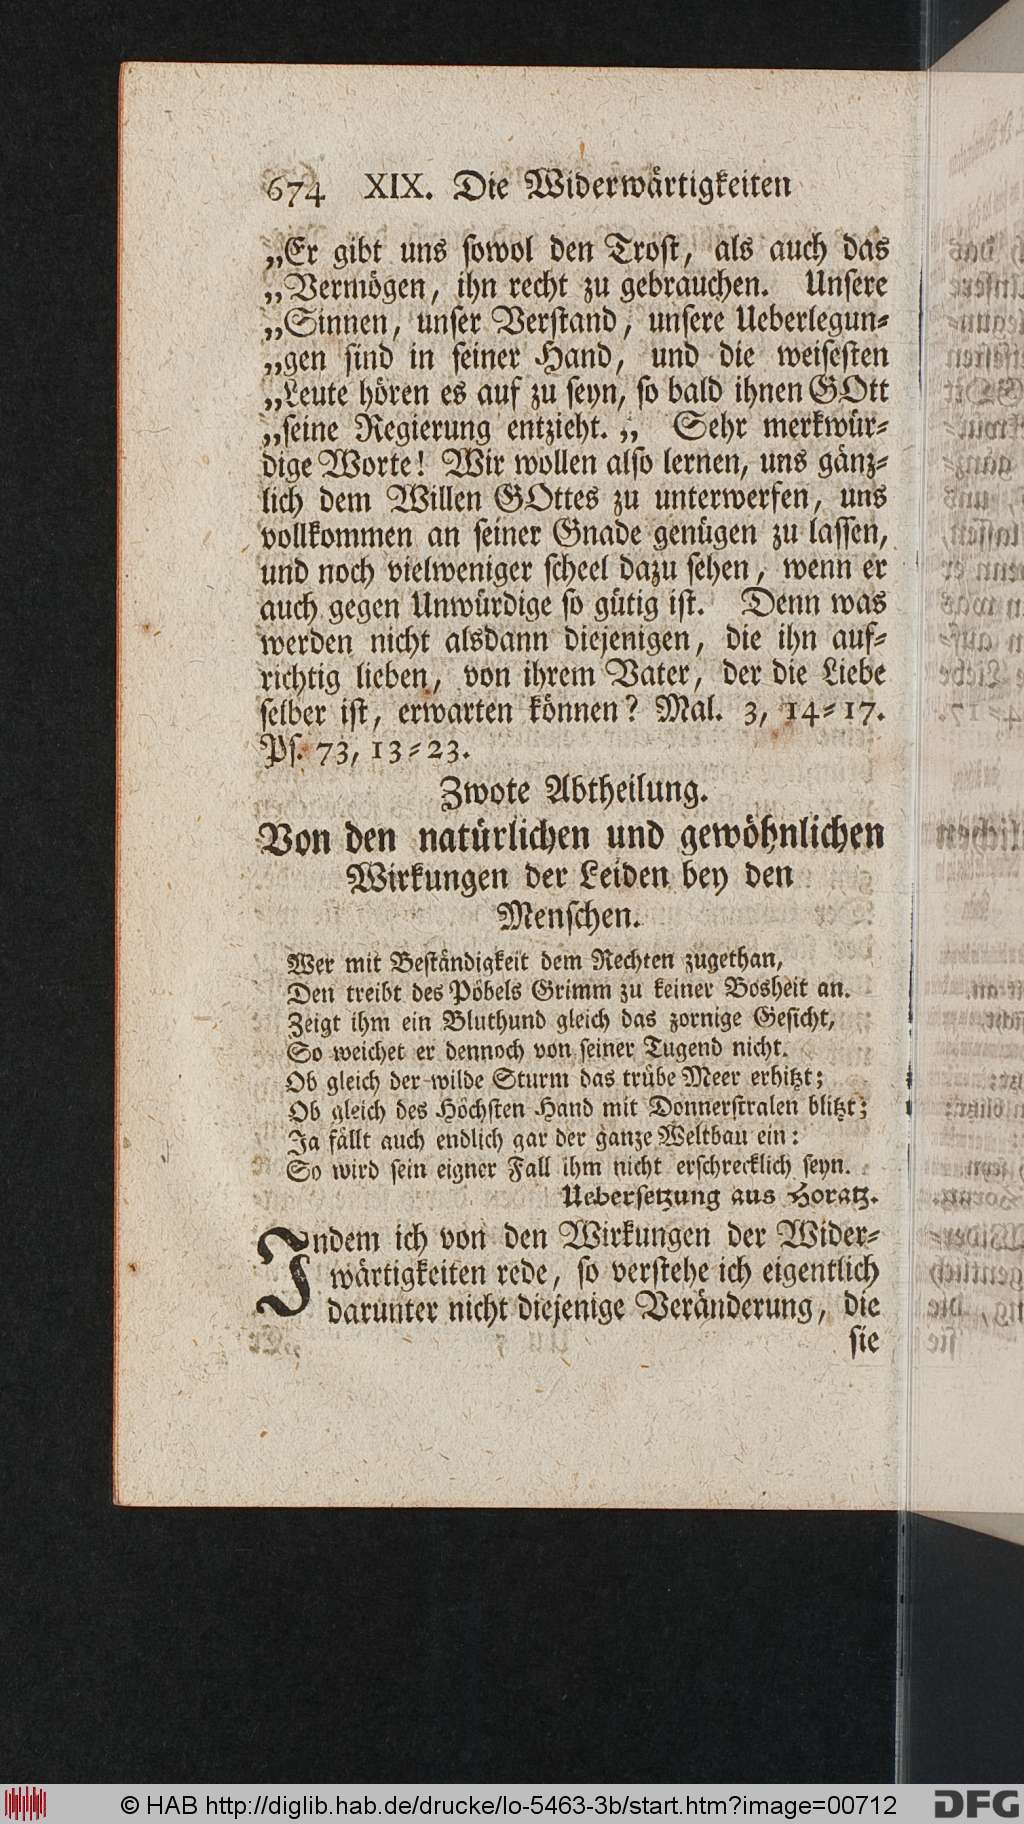 674 XIX. Die Widerwärtigkeiten
„Er gibt uns sowol den Trost, als auch das
„Vermögen, ihn recht zu gebrauchen. Unsere
„Sinnen, unser Verstand, unsere Ueberlegun-
„gen sind in seiner Hand, und die weisesten
„Leute hören es auf zu seyn, so bald ihnen GOtt
„seine Regierung entzieht. „ Sehr merkwür-
dige Worte! Wir wollen also lernen, uns gänz-
lich dem Willen GOttes zu unterwerfen, uns
vollkommen an seiner Gnade genügen zu lassen,
und noch vielweniger scheel dazu sehen, wenn er
auch gegen Unwürdige so gütig ist. Denn was
werden nicht alsdann diejenigen, die ihn auf-
richtig lieben, von ihrem Vater, der die Liebe
selber ist, erwarten können? Mal. 3, 14-17.
Ps. 73, 13-23.
Zwote Abtheilung.
Von den natürlichen und gewöhnlichen
Wirkungen der Leiden bey den
Menschen.
Wer mit Beständigkeit dem Rechten zugethan,
Den treibt des Pöbels Grimm zu keiner Bosheit an.
Zeigt ihm ein Bluthund gleich das zornige Gesicht,
So weichet er dennoch von seiner Tugend nicht.
Ob gleich der wilde Sturm das trübe Meer erhitzt;
Ob gleich des Höchsten Hand mit Donnerstralen blitzt;
Ja fällt auch endlich gar der ganze Weltbau ein:
So wird sein eigner Fall ihm nicht erschrecklich seyn.
Uebersetzung aus Horatz.
Indem ich von den Wirkungen der Wider-
wärtigkeiten rede, so verstehe ich eigentlich
darunter nicht diejenige Veränderung, die
sie
© HAB http://diglib.hab.de/drucke/lo-5463-3b/start.htm?image=00712
DFG